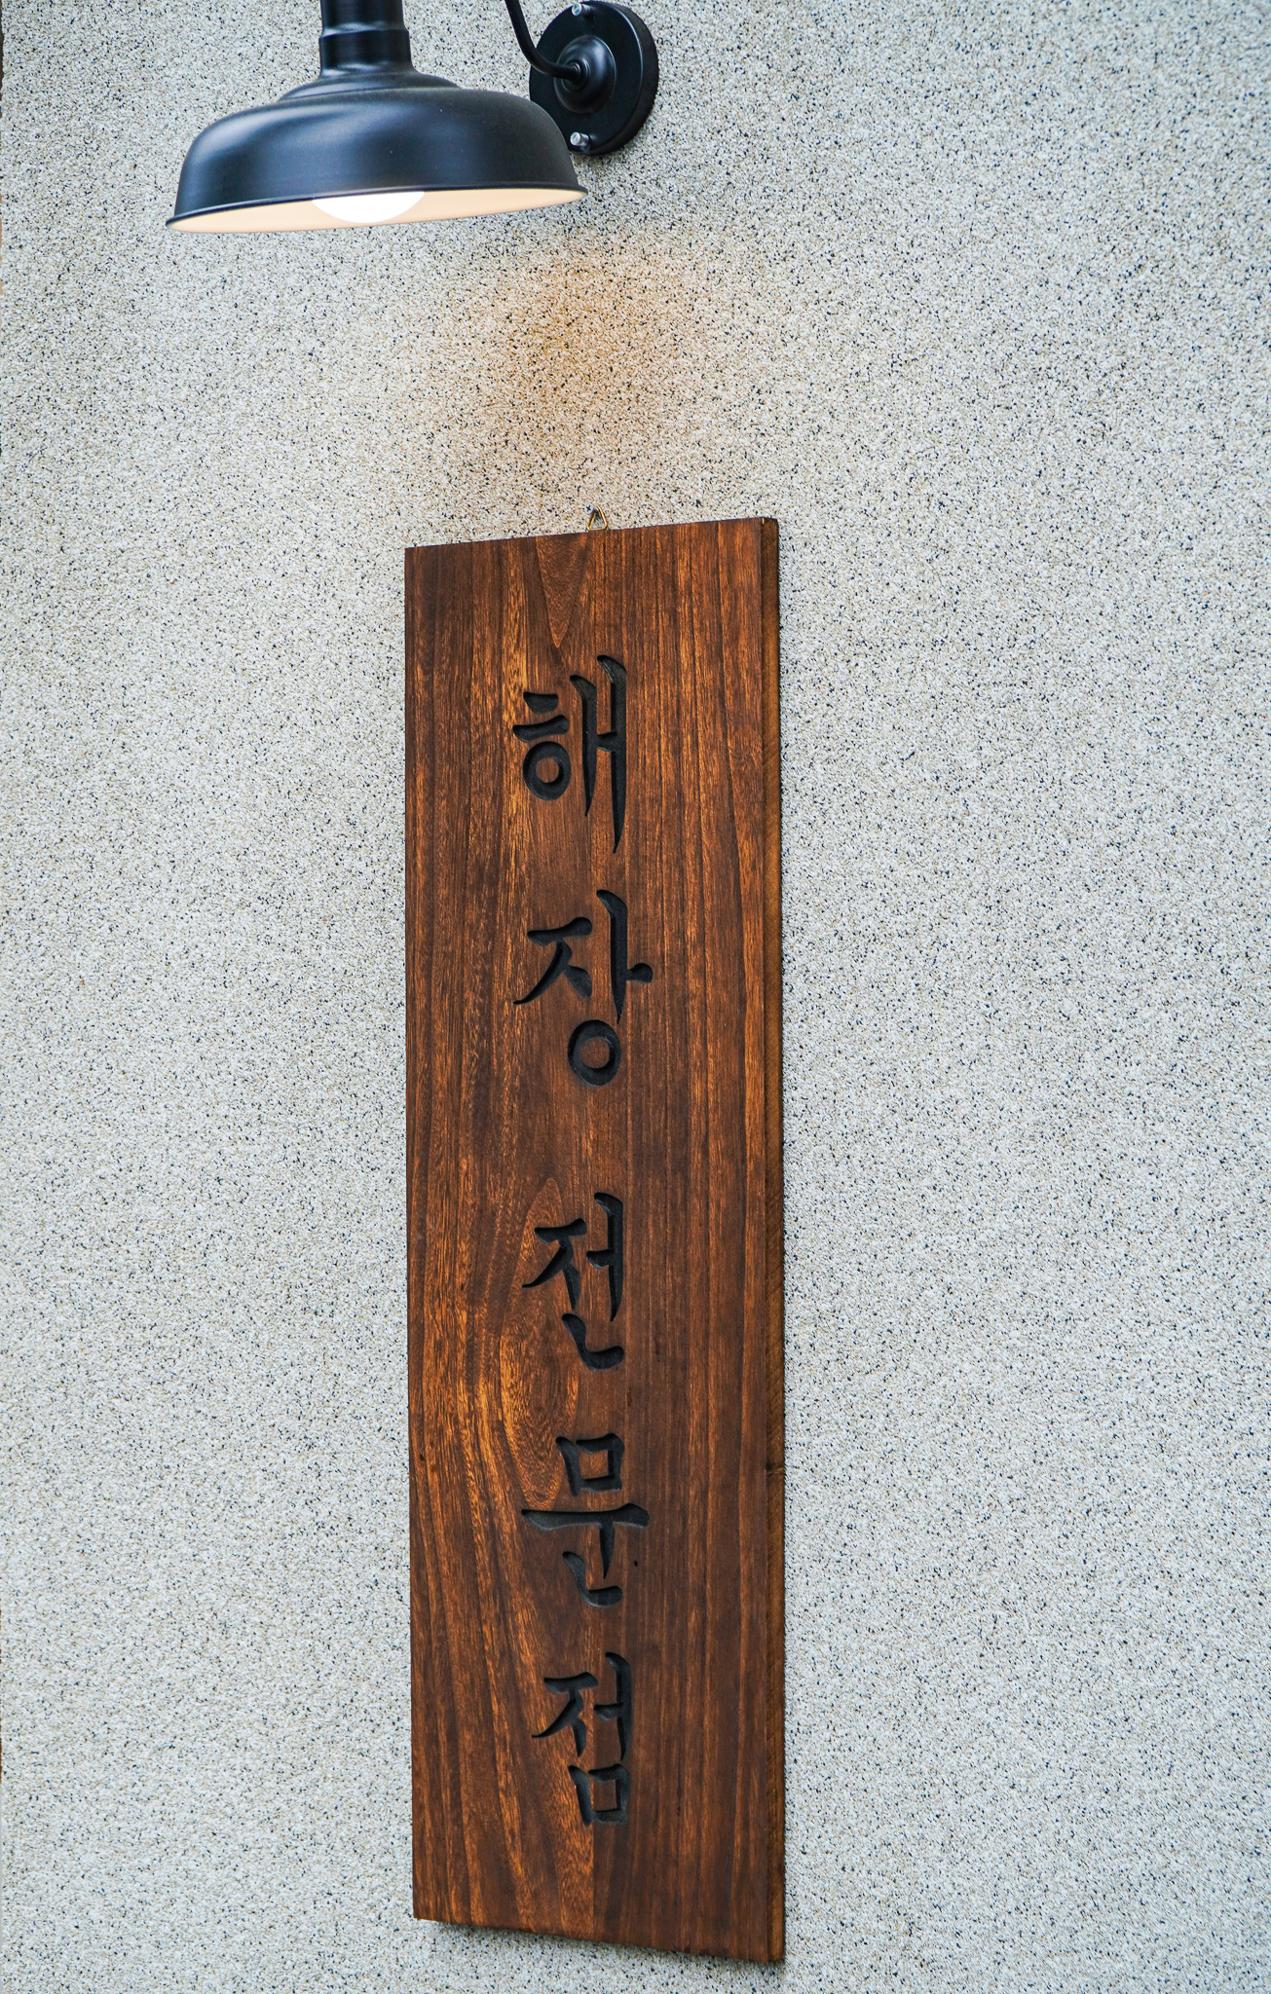 해장 전문점